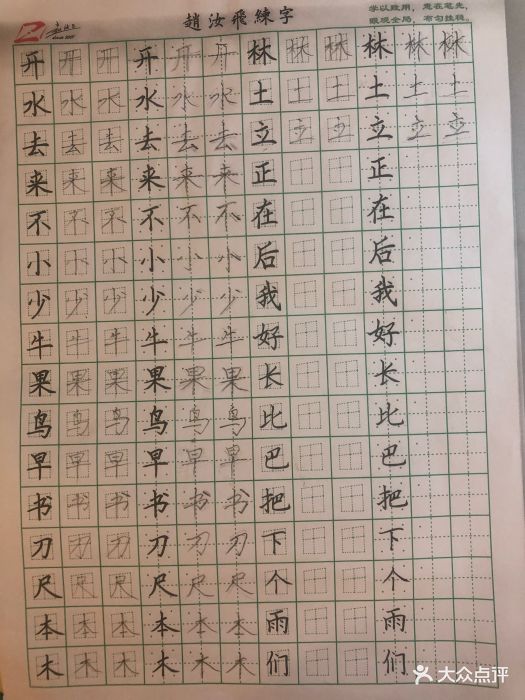 趙汝飛練字
学以致用，意在笔先，
眼观全局，布匀挂稳。
开 开 开 开 开 开 林 林 林 林 林 林
水 水 水 水 水 水 土 土 土 土 土 土
去 去 去 去 去 去 立 立 立 立 立 立
来 来 来 来 来 来 正 正
不 不 不 不 不 不 在 在
小 小 小 小 小 小 后 后
少 少 少 少 少 少 我 我
牛 牛 牛 牛 牛 牛 好 好
果 果 果 果 果 果 长 长
鸟 鸟 鸟 鸟 鸟 鸟 比 比
早 早 早 早 早 早 巴 巴
书 书 书 书 书 书 把 把
刀 刀 刀 刀 刀 刀 下 下
尺 尺 尺 尺 尺 尺 个 个
本 本 本 本 本 本 雨 雨
木 木 木 木 木 木 们 们
大众点评